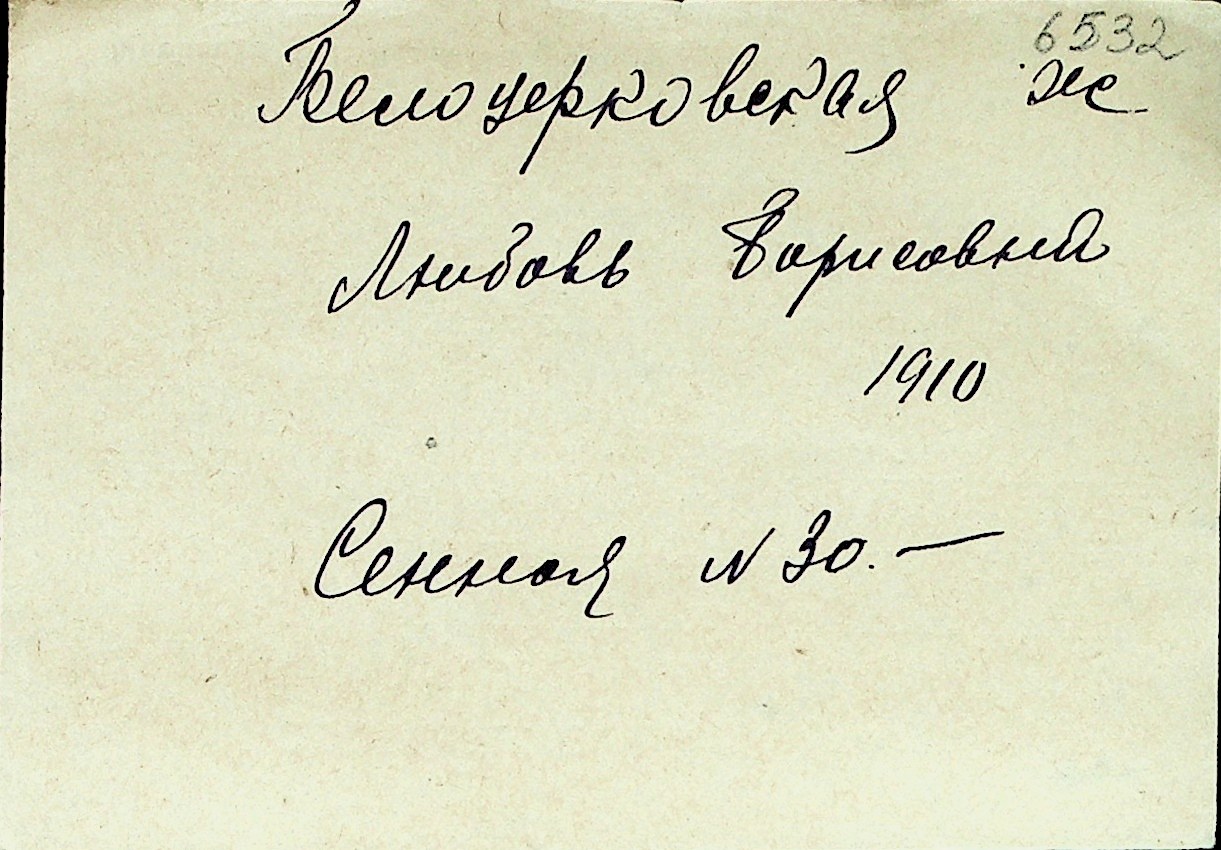 6532
Белоцерковская ж
Любовь Борисовный
1910
Сенная N 30. —